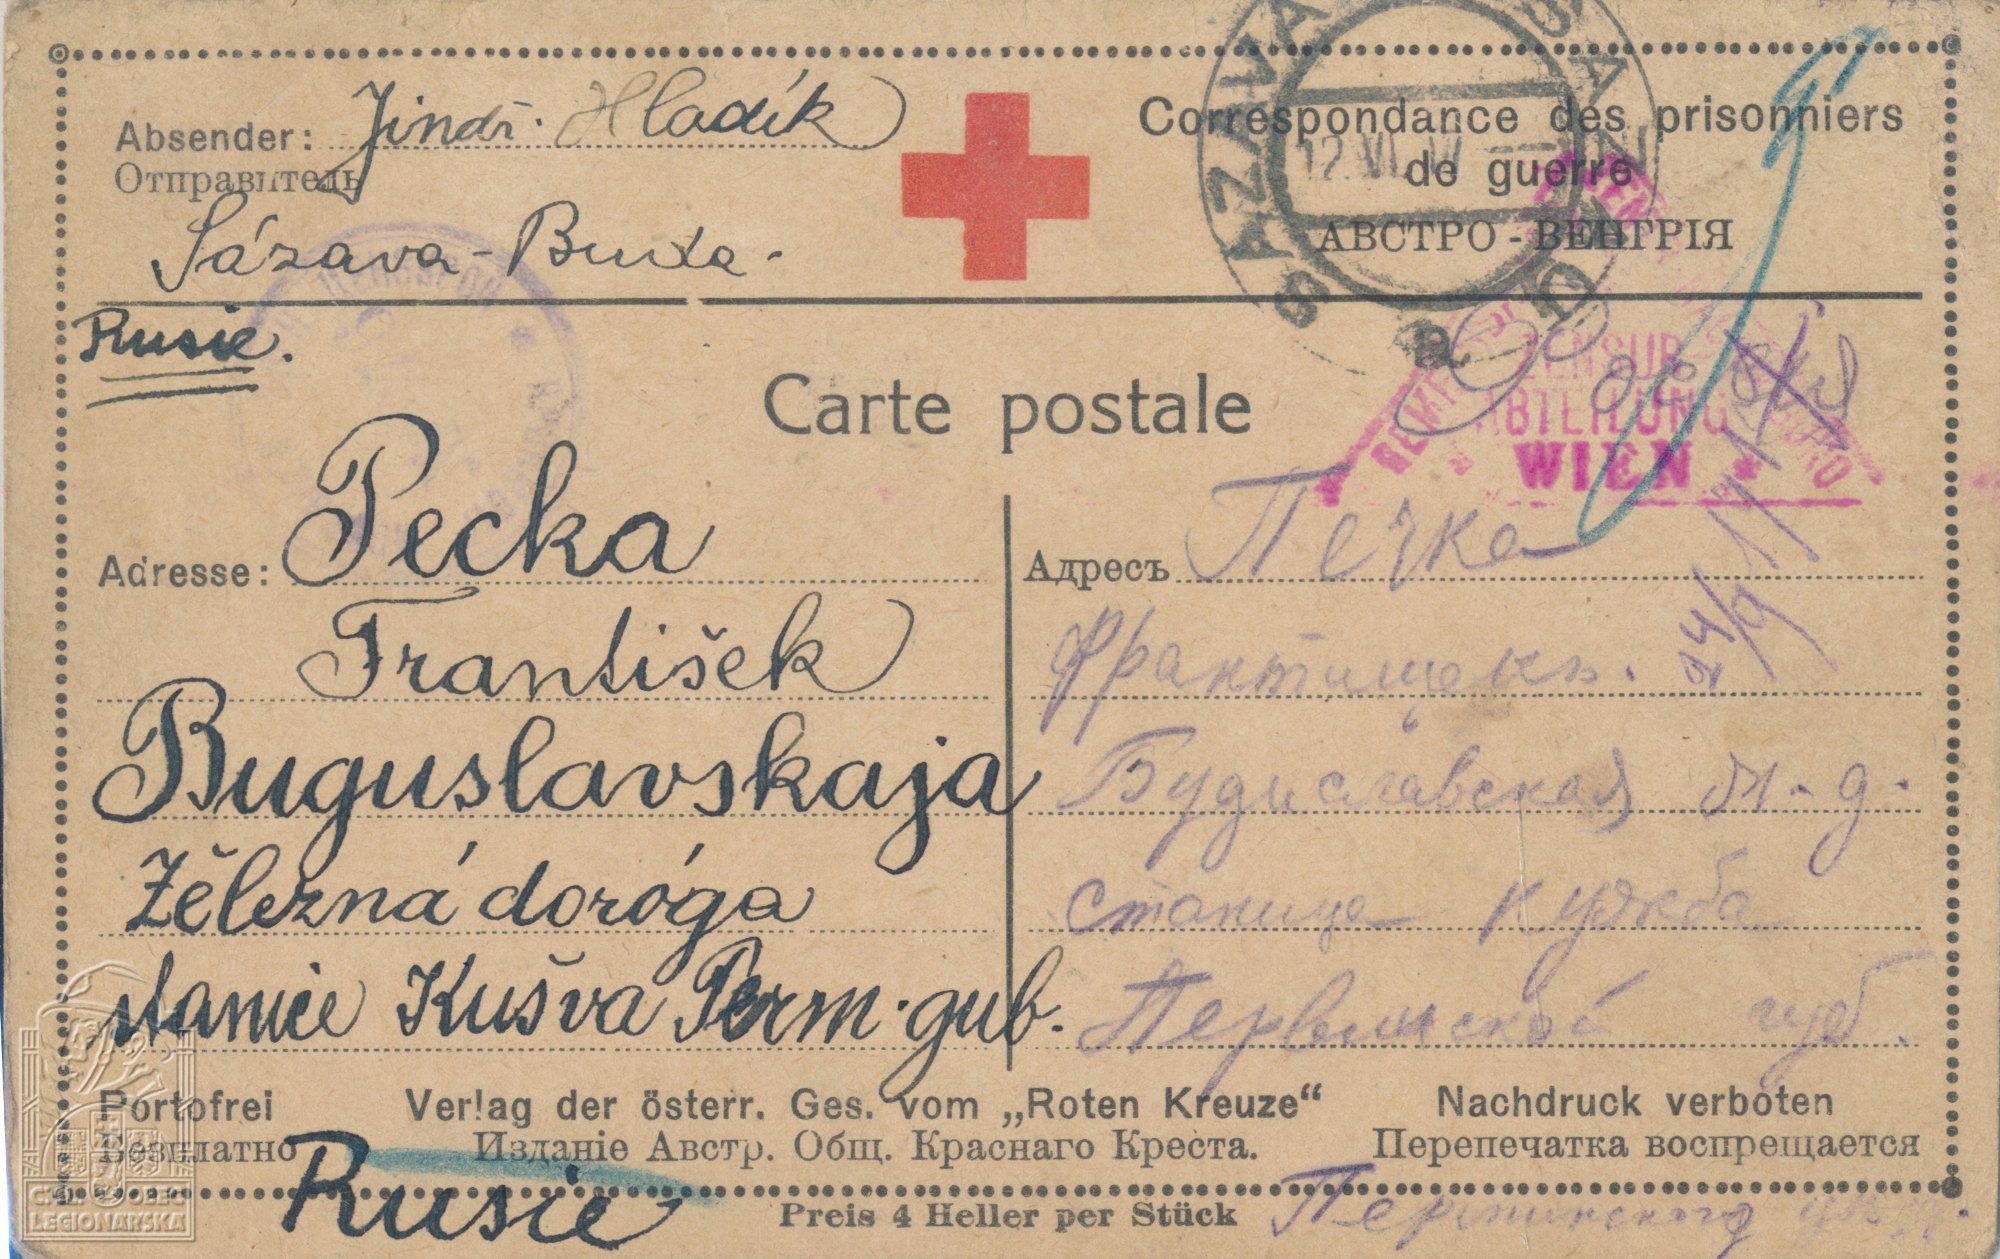 Absender: Jindř. Hladík
Отправитель
Sázava-Buda.
Correspondance des prisonniers
de guerre
АВСТРО-ВЕНГРІЯ
SAZAVA
12.VI.17
Rusie.
Carte postale
ZENSUR
ABTEILUNG
WIEN
Adresse: Pecka
František
Buguslavskaja
Zělezná doróga
stanice Kušva Perm. gub.
Адресъ Печка
Франтишекъ.
24/9 17
станица Кушва
Пермской губ.
Portofrei
Безплатно
Verlag der österr. Ges. vom „Roten Kreuze“
Изданіе Австр. Общ. Краснаго Креста.
Nachdruck verboten
Перепечатка воспрещается
Rusie
Preis 4 Heller per Stück
LEGIONÁŘSKÁ